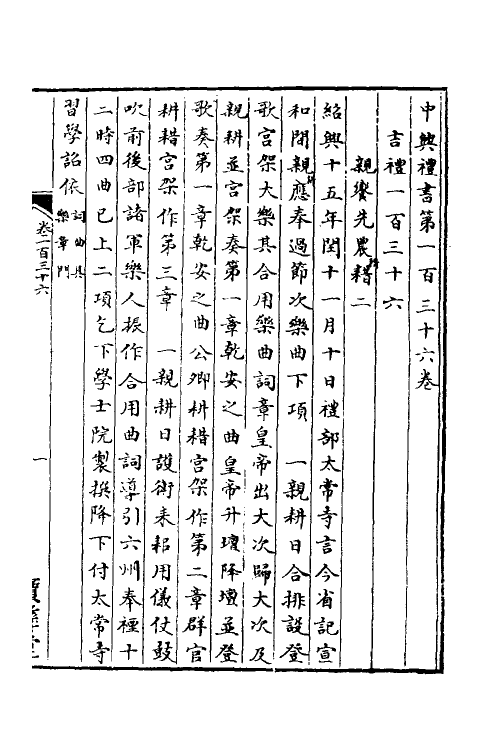 中興禮書第一百三十六卷
吉禮一百三十六
親饗先農耤二
紹興十五年閏十一月十日禮部太常寺言今省記宣
和間親耕應奉過節次樂曲下項　一親耕日合排設登
歌宮架大樂其合用樂曲詞章皇帝出大次歸大次及
親耕並宮架奏第一章乾安之曲皇帝升壇降壇並登
歌奏第一章乾安之曲公卿耕耤宮架作第二章群官
耕耤宮架作第三章　一親耕日護衛耒耜用儀仗鼓
吹前後部諸軍樂人振作合用曲詞導引六州奉禋十
二時四曲已上二項乞下學士院製撰降下付太常寺
習學詔依詞曲具樂章門
卷一百三十六
一